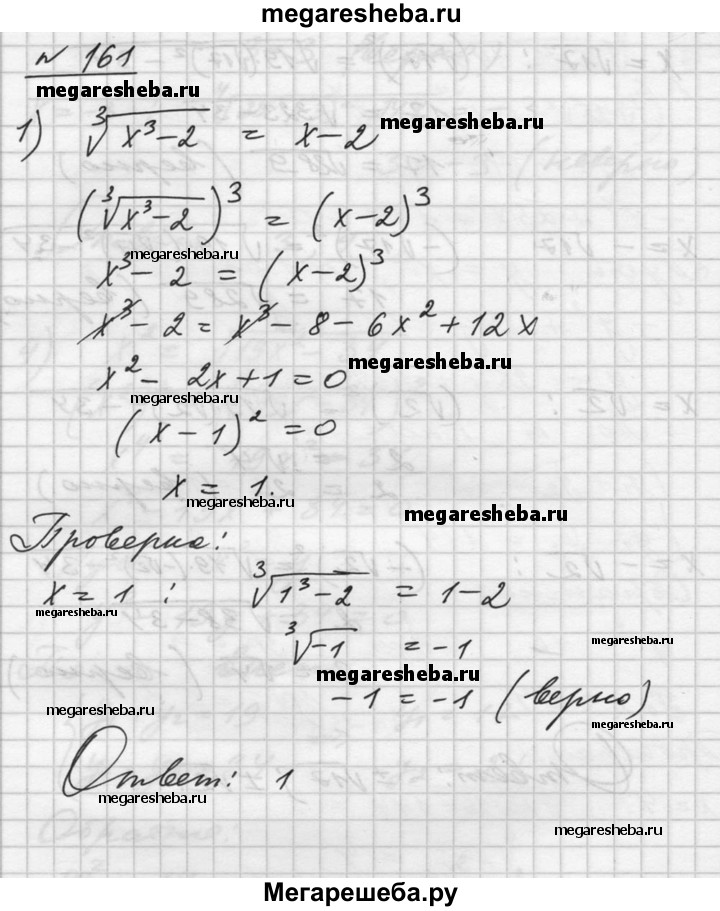 megaresheba.ru
№ 161
megaresheba.ru
1) ∛(x³-2) = x-2 megaresheba.ru
(∛(x³-2))³ = (x-2)³
megaresheba.ru
x³-2 = (x-2)³
x³-2 = x³-8-6x²+12x
megaresheba.ru
x²-2x+1=0
megaresheba.ru
(x-1)²=0
x = 1.
megaresheba.ru
megaresheba.ru
Проверка:
x=1: ∛(1³-2) = 1-2
megaresheba.ru
∛-1 = -1
megaresheba.ru
megaresheba.ru
-1=-1 (верно)
megaresheba.ru
megaresheba.ru
Ответ: 1
megaresheba.ru
megaresheba.ru
Мегарешеба.ру